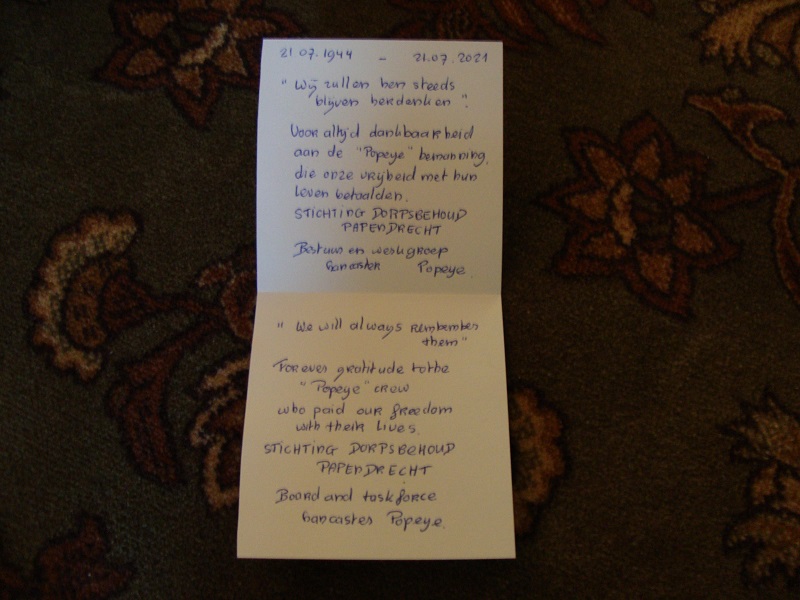 21.07.1944 - 21.07.2021
"Wij zullen hen steeds
blijven herdenken".
Voor altijd dankbaarheid
aan de "Popeye" bemanning,
die onze vrijheid met hun
leven betaalden.
STICHTING DORPSBEHOUD
PAPENDRECHT
Bestuur en werkgroep
Lancaster Popeye.
"We will always remember
them"
Forever gratitude to the
"Popeye" crew
who paid our freedom
with their lives.
STICHTING DORPSBEHOUD
PAPENDRECHT
Board and taskforce
Lancaster Popeye.